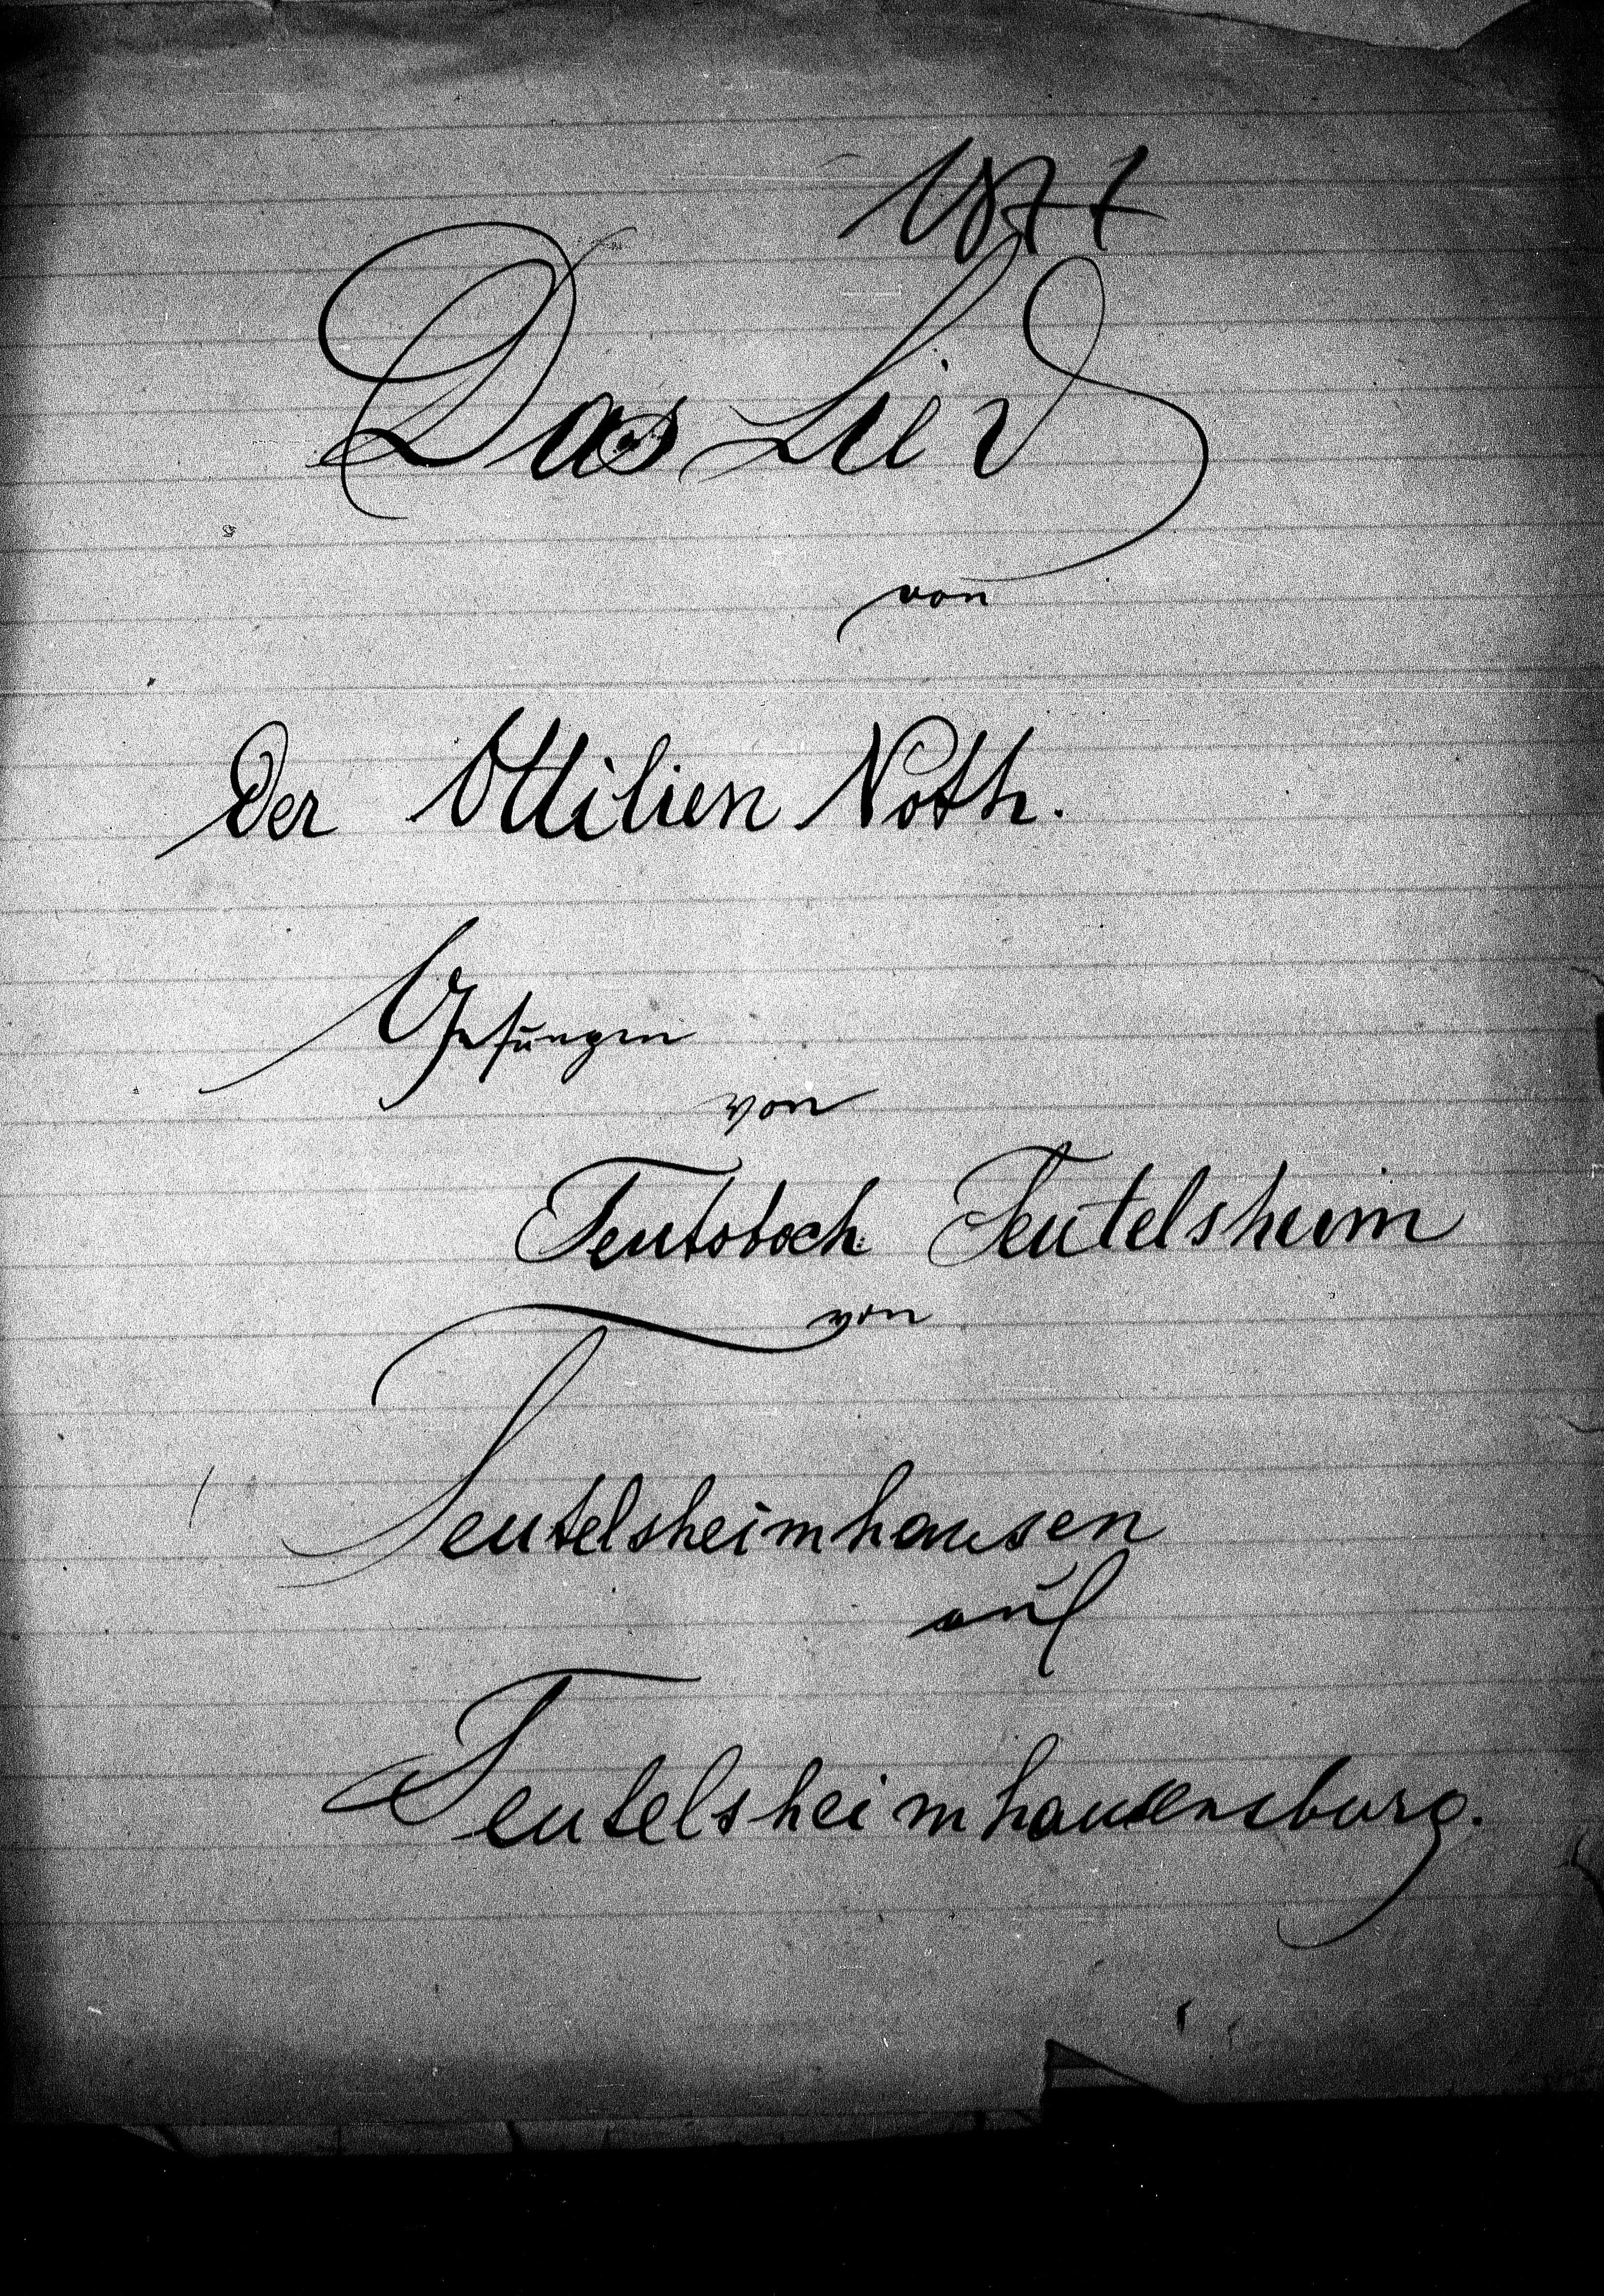 1871
Das Lied
von
Der Ottilien Noth.
Gesungen
von
Teutoboch Teutelsheim
von
Teutelsheimhausen
auf
Teutelsheimhausenburg.